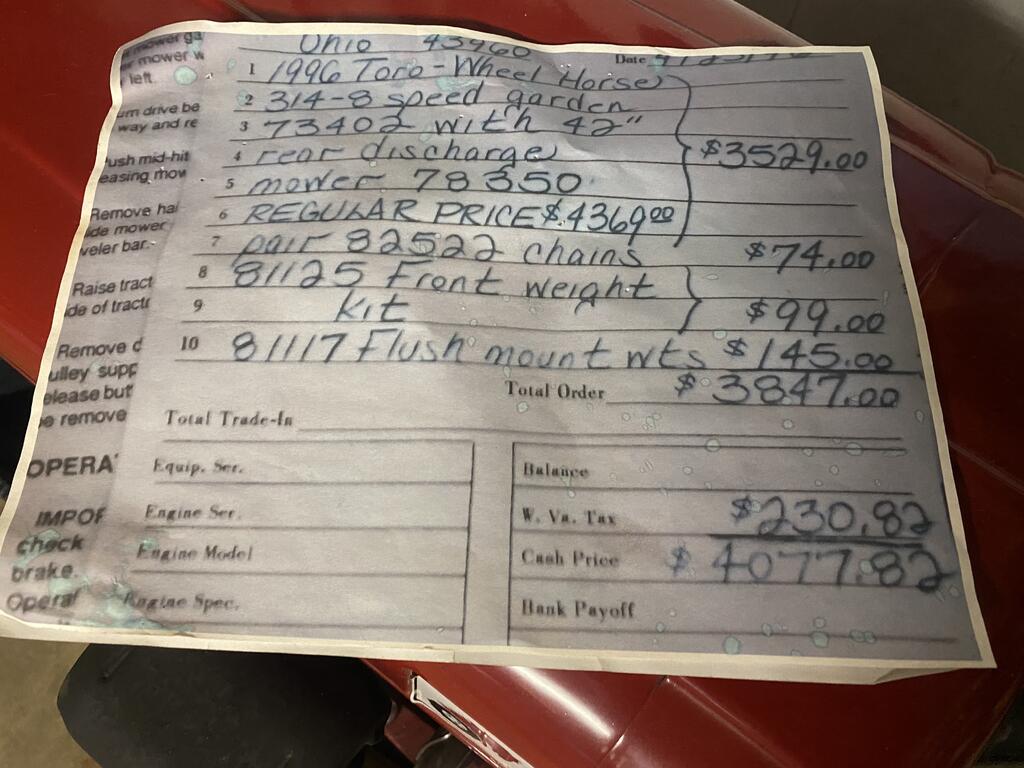 Ohio 43960
Date
1 1996 Toro-Wheel Horse
2 314-8 speed garden
3 73402 with 42"
4 rear discharge $3529.00
5 mower 78350
6 REGULAR PRICE $4369.00
7 pair 82522 chains $74.00
8 81125 Front weight
9 kit $99.00
10 81117 Flush mount wts $145.00
Total Order $3847.00
Total Trade-In
Equip. Ser.
Balance
Engine Ser.
W. Va. Tax $230.82
Engine Model
Cash Price $4077.82
Engine Spec.
Bank Payoff
mower w
left.
um drive be
way and re
ush mid-hit
easing mow
Remove hai
ide mower
veler bar.
Raise tract
ide of tract
Remove d
ulley supp
elease but
e remove
OPERA
IMPOR
check
brake.
Operat